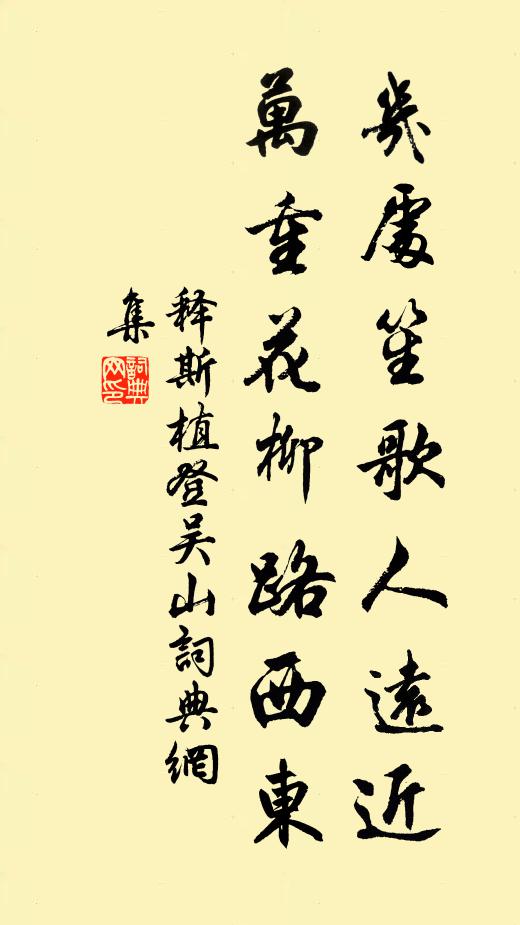 幾處笙歌人遠近
萬重花柳路西東
释斯植登吴山詞典網
集
詞典网印